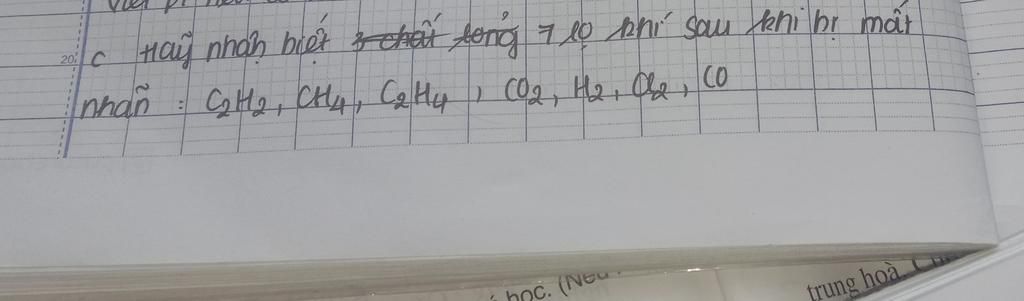 c Hãy nhận biết 3 chất lỏng 7 lọ khí sau khi bị mất
nhãn : C₂H₂, CH₄, C₂H₄, CO₂, H₂, Cl₂, CO
học. (Nếu
trung hoà.